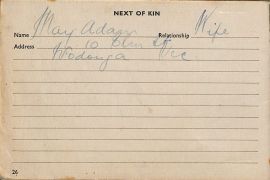 NEXT OF KIN
Name May Adam Relationship Wife
Address 10 Elm St
Wodonga Vic
26